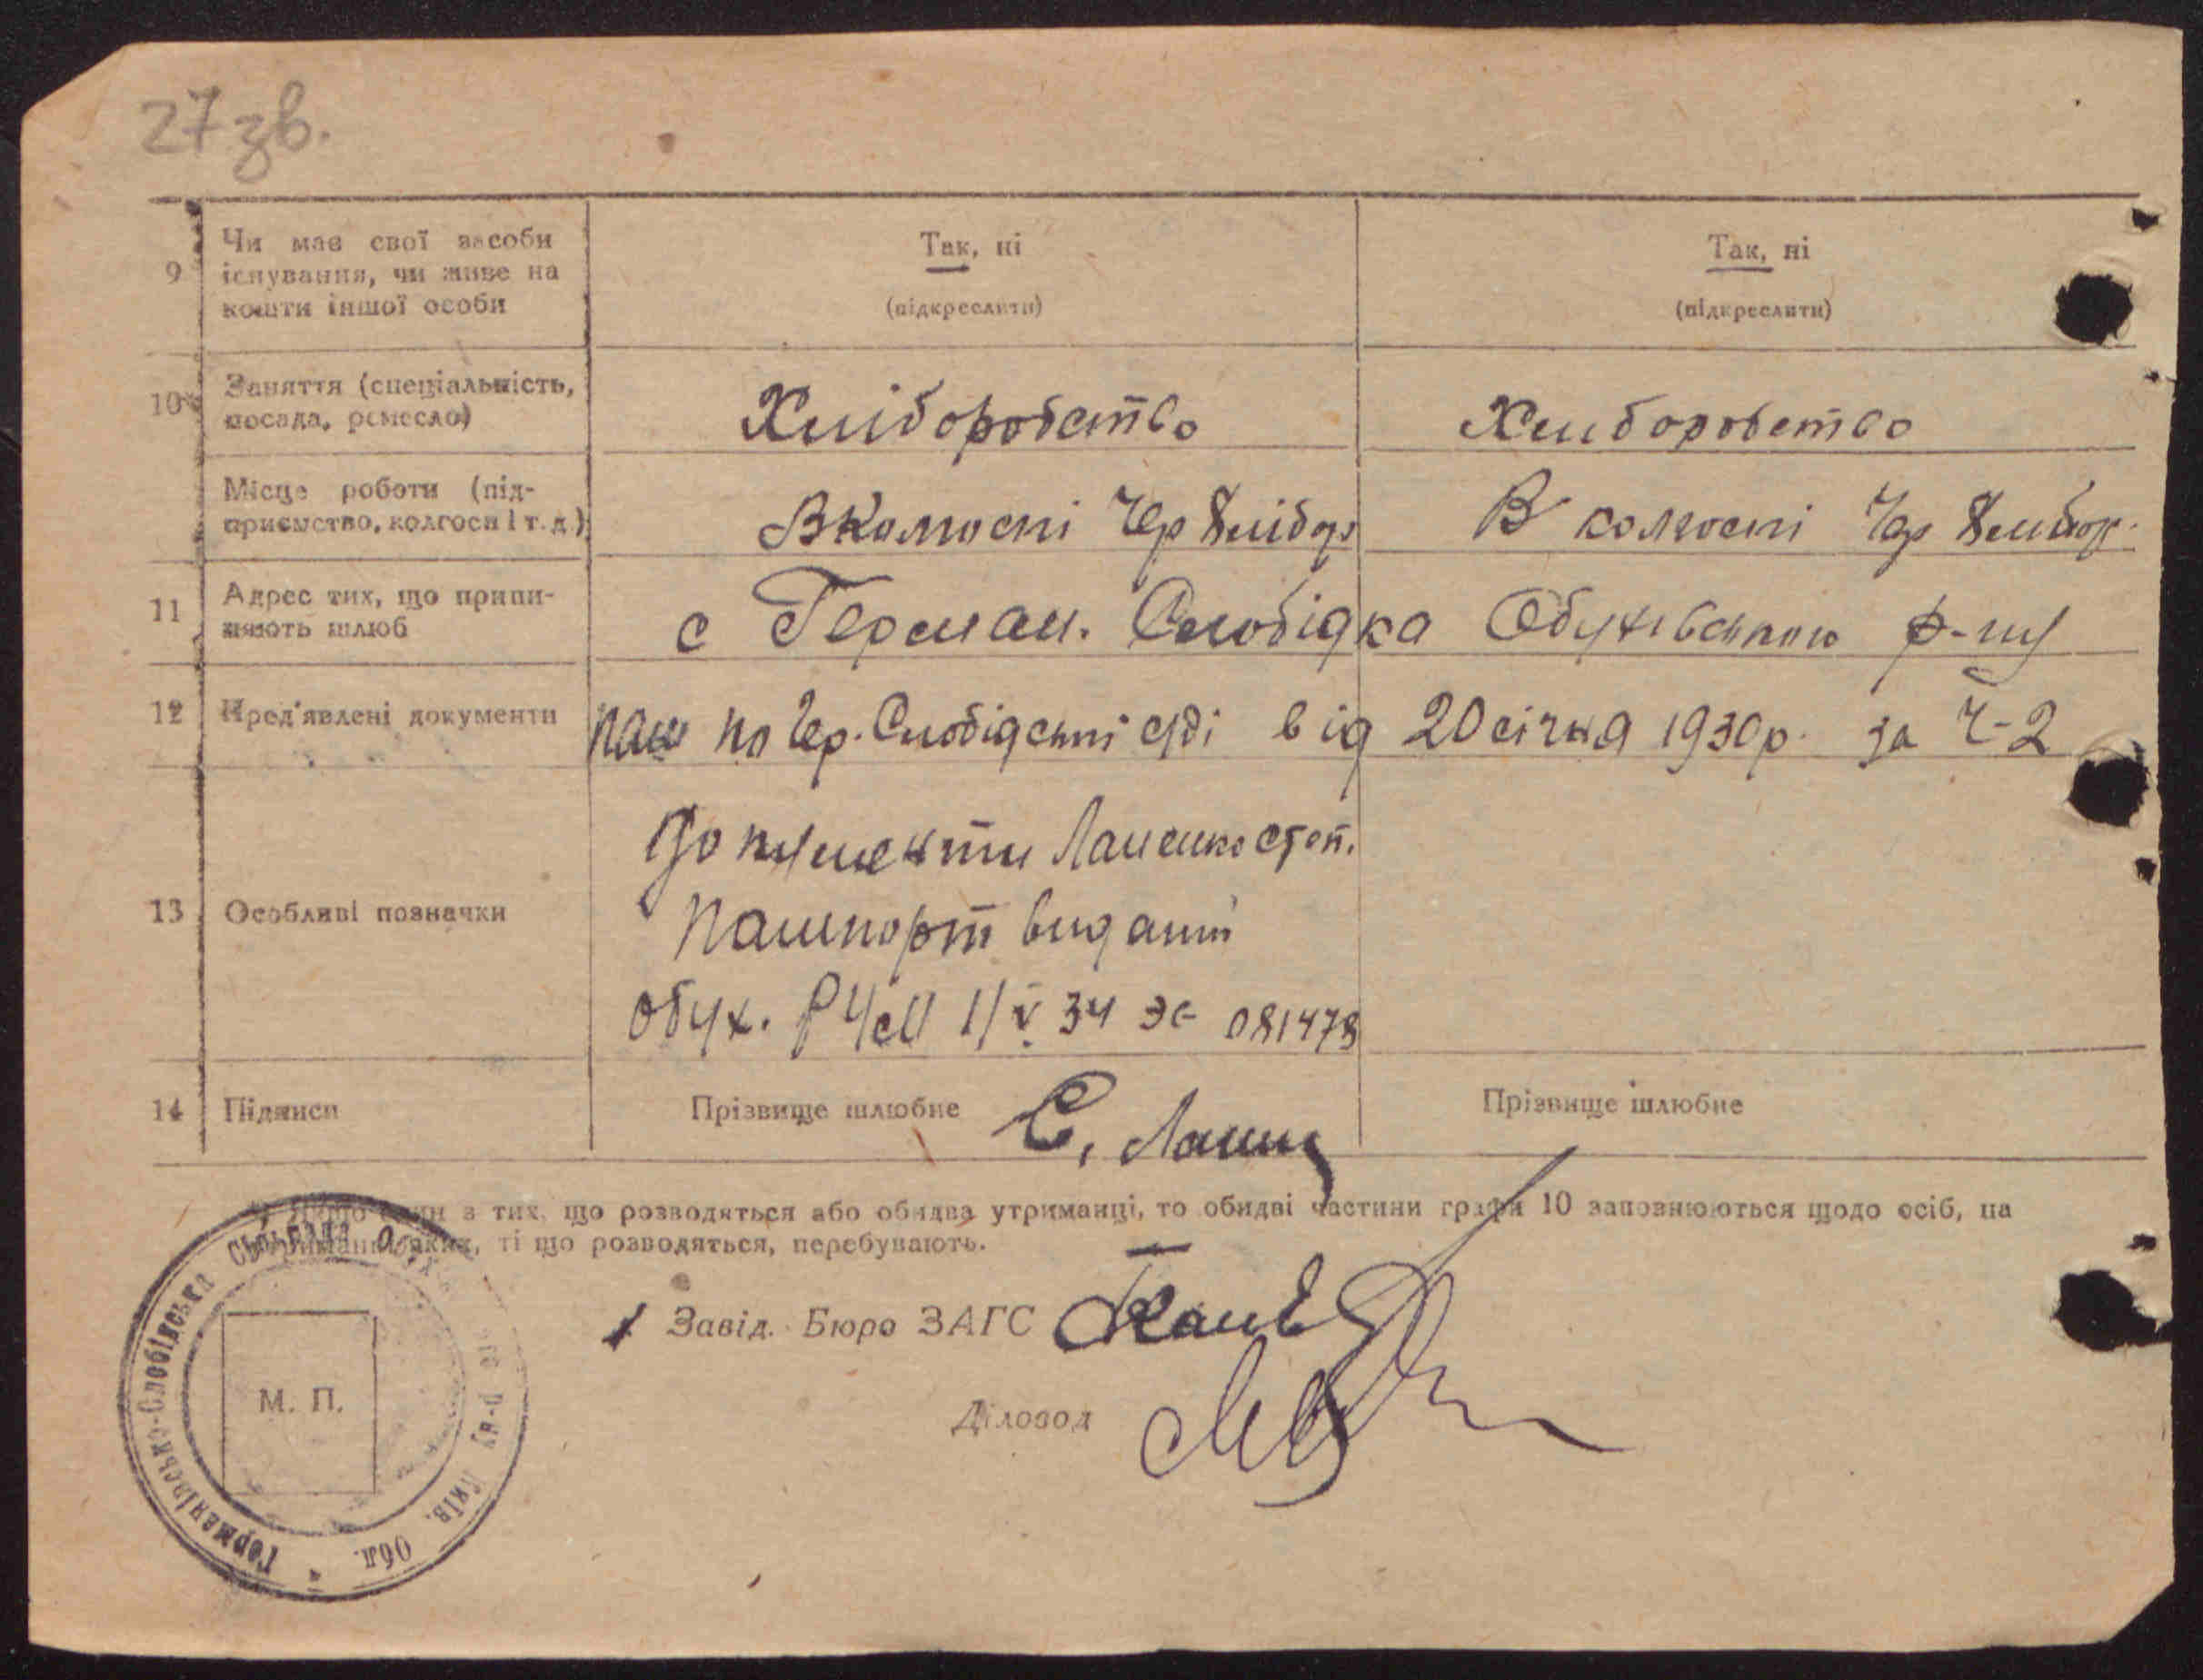 27 зв.
9 Чи має свої засоби існування, чи живе на кошти іншої особи
Так, ні
(підкреслити)
Так, ні
(підкреслити)
10 Заняття (спеціальність, посада, ремесло)
Хліборобство
Хліборобство
Місце роботи (підприємство, колгосп і т. д.)
В колгоспі Чер Хлібор
В колгоспі Чер Хлібор.
11 Адрес тих, що припиняють шлюб
с Герман. Слобідка Обухівського р-ну
12 Пред'явлені документи
по Гер. Слобідській с/ді від 20 січня 1930 р. за Ч-2
13 Особливі позначки
Документи Лашенко Степ.
Пашпорт виданий
Обух. 1/V 34 ЭС 081478
14 Підписи
Прізвище шлюбне С. Лашен
Прізвище шлюбне
Якщо один з тих, що розводяться або обидва утриманці, то обидві частини графи 10 заповнюються щодо осіб, на
утриманні яких, ті що розводяться, перебувають.
Завід. Бюро ЗАГС
Діловод
М. П.
Германівсько-Слобідська сільрада Обухівського р-ну Київ. Обл.